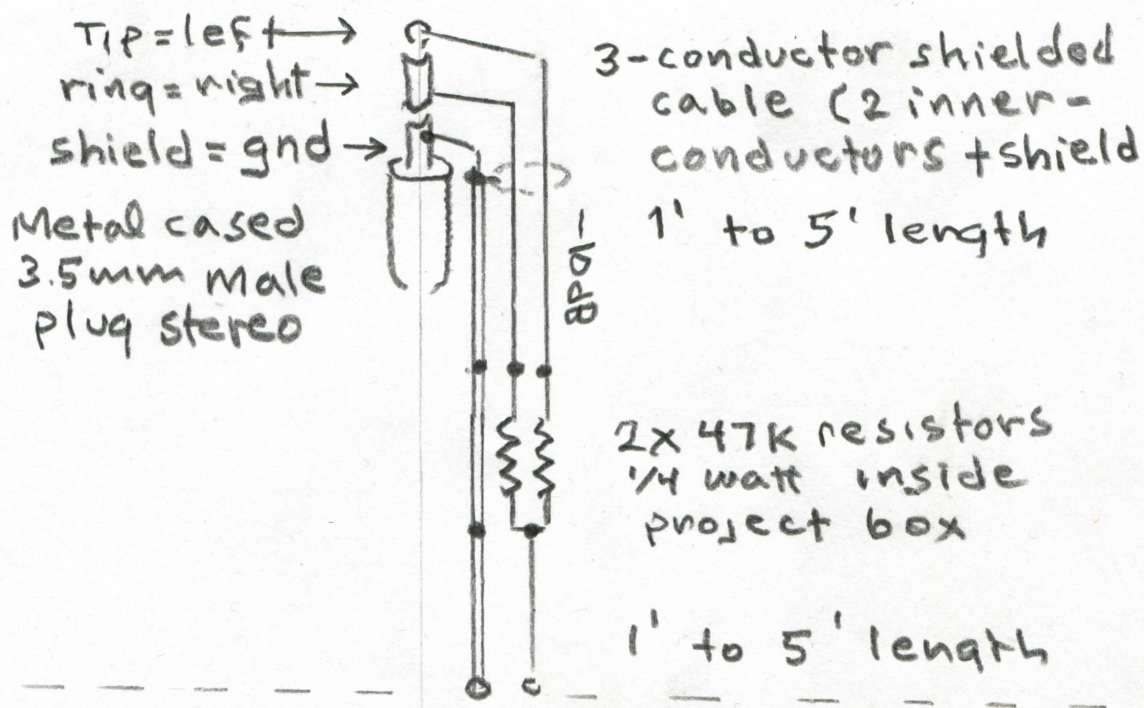 Tip=left→
ring=right→
shield=gnd→
Metal cased
3.5mm Male
plug stereo
3-conductor shielded
cable (2 inner-
conductors + shield
1' to 5' length
2x 47K resistors
1/4 watt inside
project box
1' to 5' length